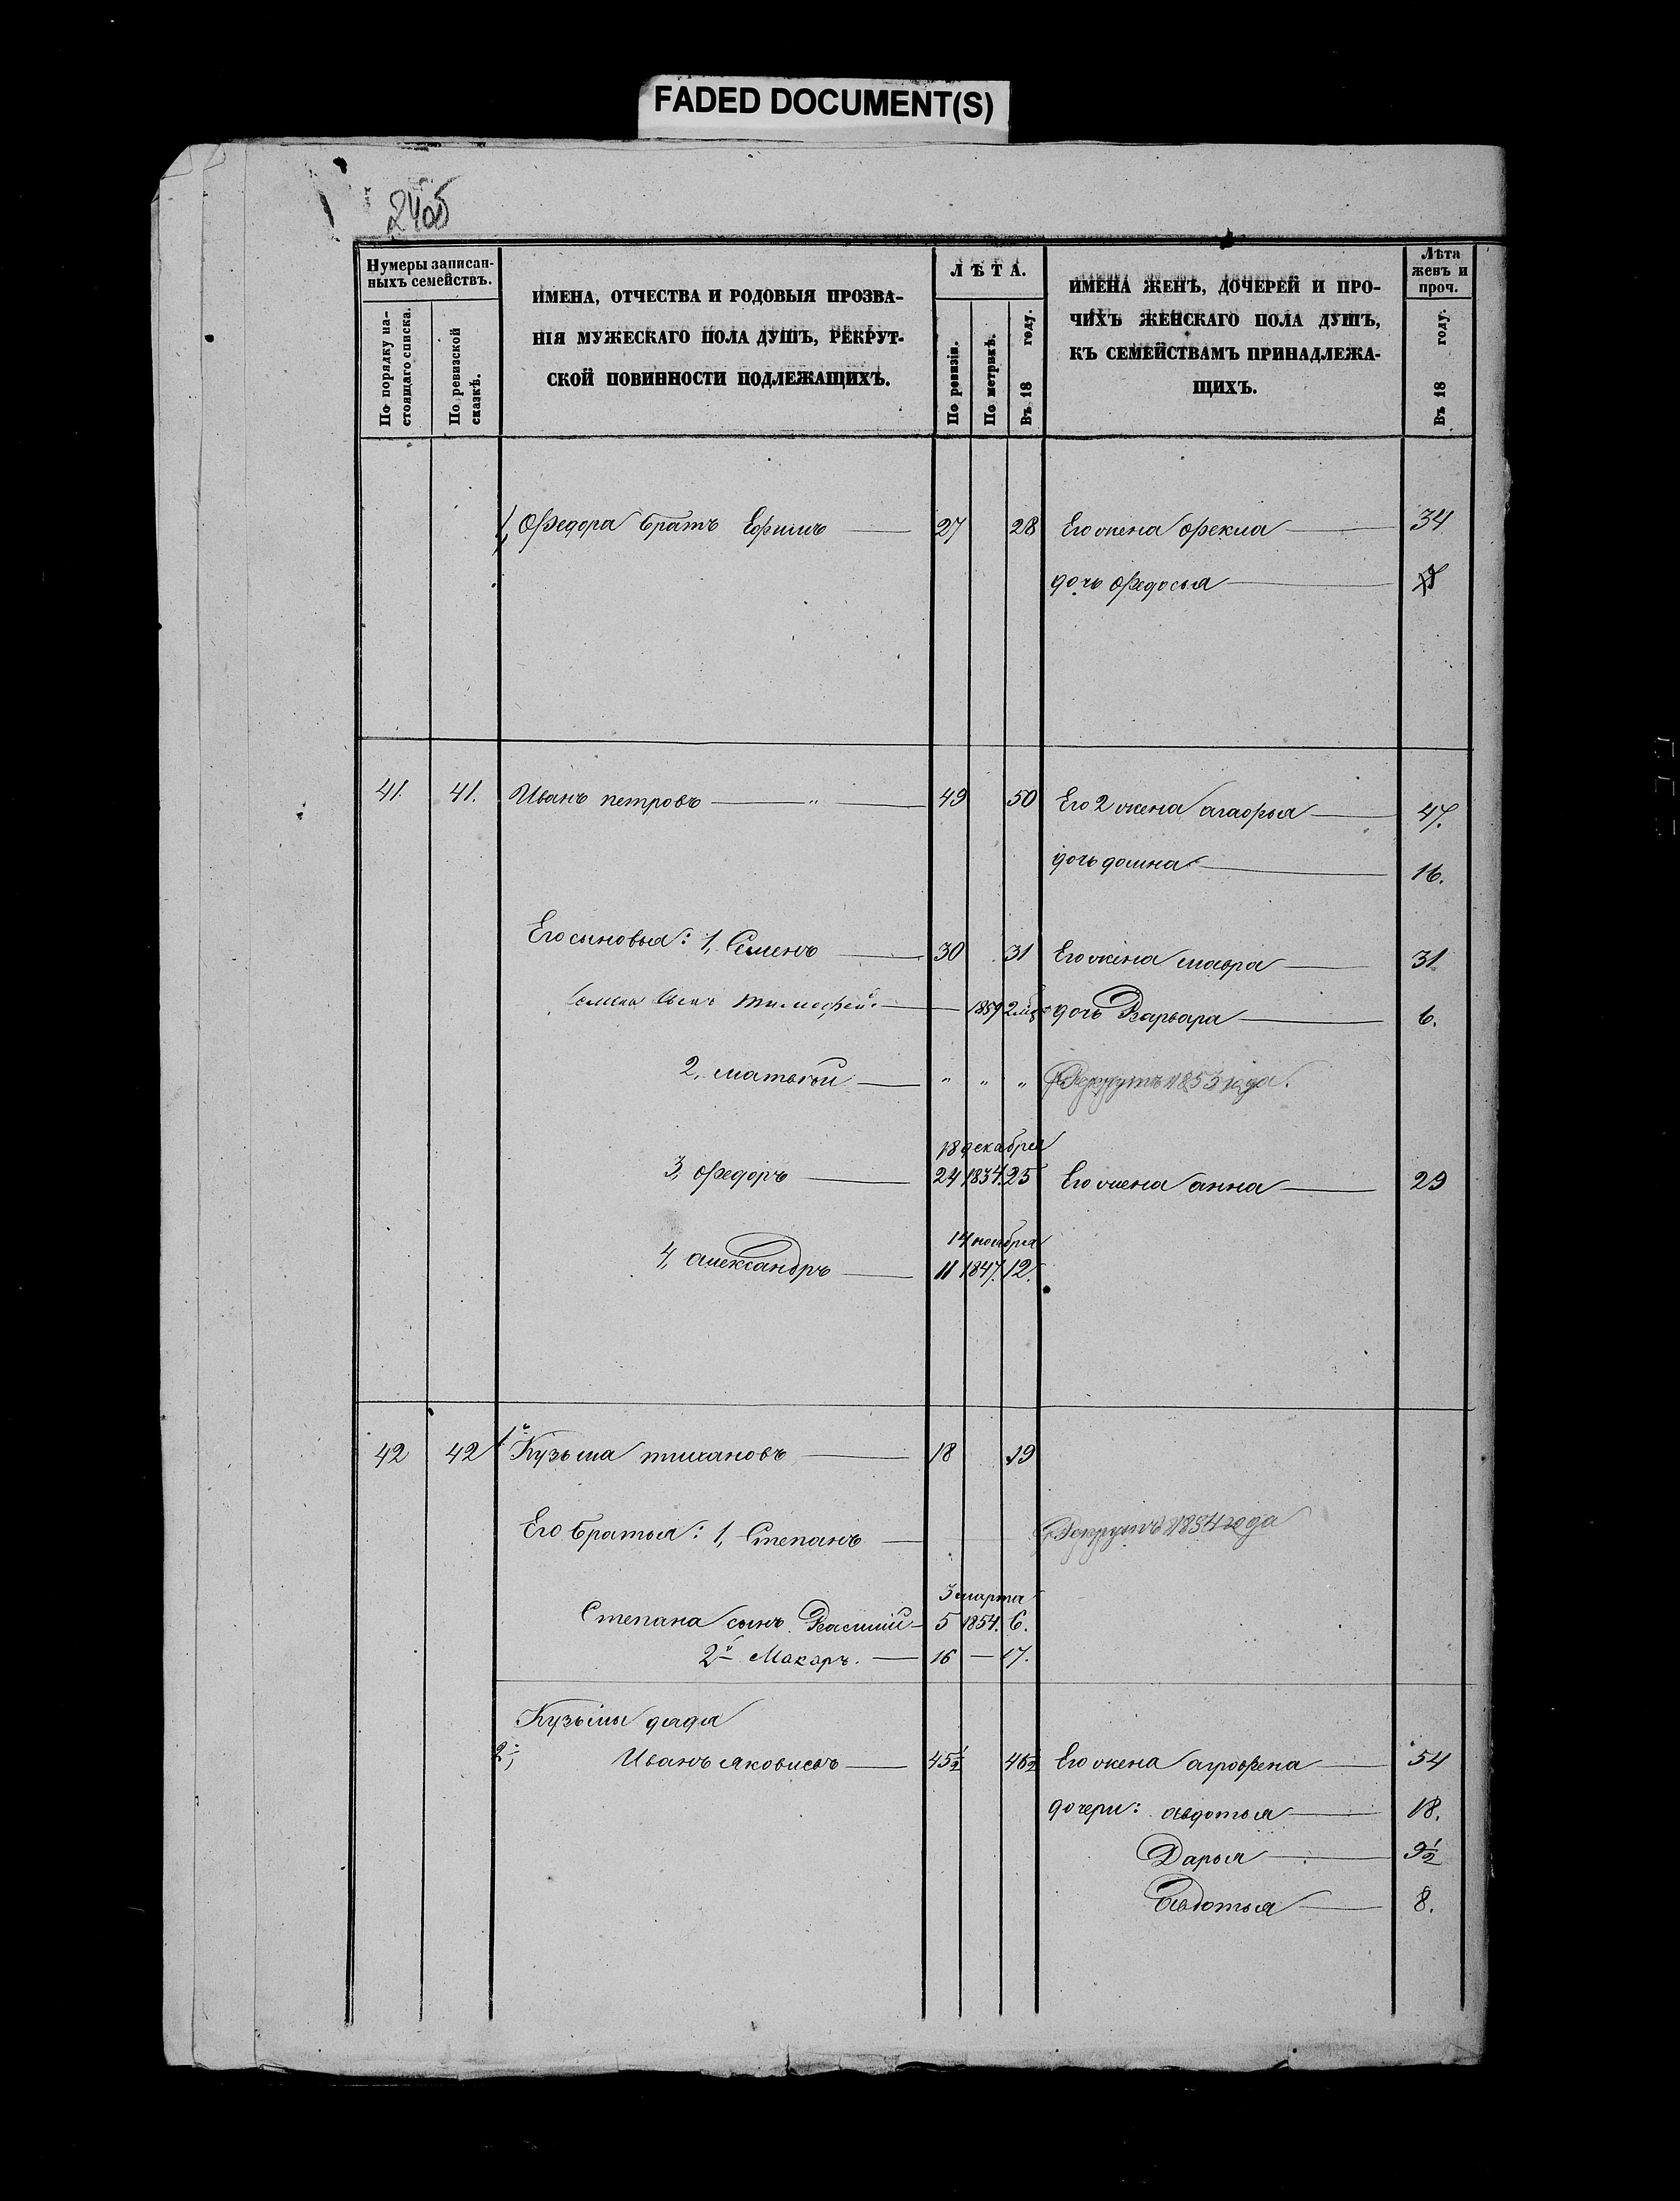 FADED DOCUMENT(S)
24об
Нумеры записан-
ныхъ семействъ.
По порядку на-
стоящаго списка.
По ревизской
сказкѣ.
ИМЕНА, ОТЧЕСТВА И РОДОВЫЯ ПРОЗВА-
НІЯ МУЖЕСКАГО ПОЛА ДУШЪ, РЕКРУТ-
СКОЙ ПОВИННОСТИ ПОДЛЕЖАЩИХЪ.
ЛѢТА.
По ревизіи.
По метрикѣ.
Въ 18 году.
ИМЕНА ЖЕНЪ, ДОЧЕРЕЙ И ПРО-
ЧИХЪ ЖЕНСКАГО ПОЛА ДУШЪ,
КЪ СЕМЕЙСТВАМЪ ПРИНАДЛЕЖА-
ЩИХЪ.
Лѣта
женъ и
проч.
Въ 18 году.
Федора братъ Ефимъ 27 28 Его жена Фекла 34
дочь Федосья
41. 41. Иванъ петровъ 49 50 Его 2 жена агафья 47.
дочь домна 16.
Его сыновья: 1, Семенъ 30 31 Его жена мавра 31
Семена сынъ Тимофей 1859 2 мѣс дочь Варвара 6.
2, матвѣй " " " Рекрутъ 1853 года.
18 декабря
3, Федоръ 24 1834. 25 Его жена анна 29
14 ноября
4, александръ 11 1847. 12.
42 42 1й Кузьма тихановъ 18 19
Его братья: 1, Степанъ Рекрутъ 1854 года
3 марта
Степана сынъ Василий 5 1854. 6.
2й Макаръ. 16 — 17.
Кузьмы дядя
2, Иванъ яковлевъ 45½ 46½ Его жена агрофена 54
дочери: авдотья 18.
Дарья 9½
Авдотья 8.